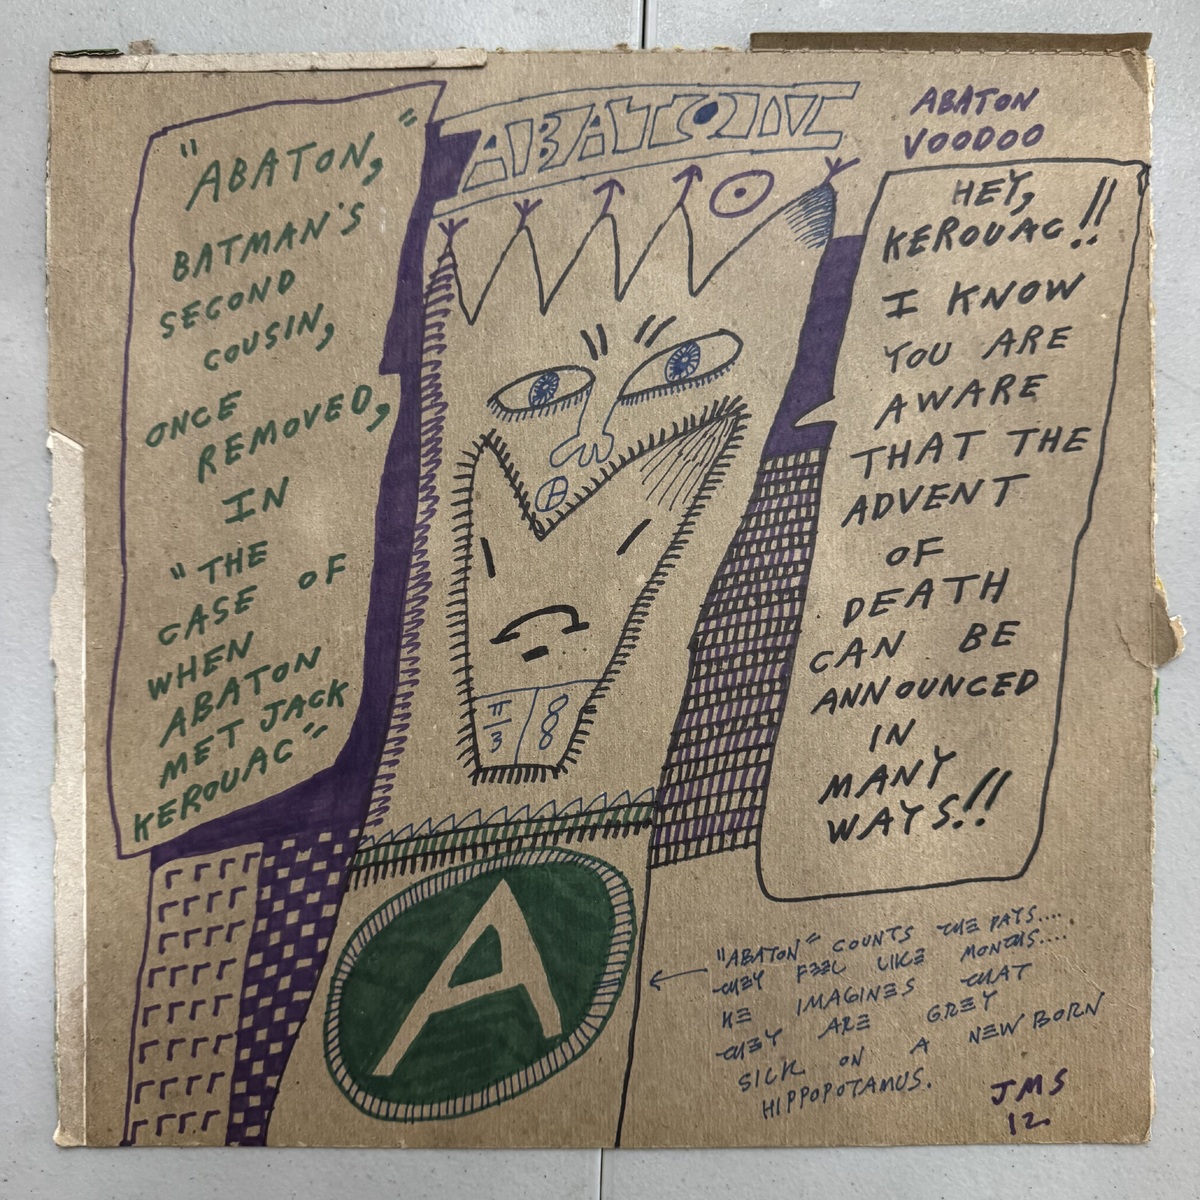 "ABATON,"
BATMAN'S
SECOND
COUSIN,
ONCE
REMOVED,
IN
"THE
CASE OF
WHEN
ABATON
MET JACK
KEROUAC"
ABATON
π/3 88
A
ABATON
VOODOO
HEY,
KEROUAC!!
I KNOW
YOU ARE
AWARE
THAT THE
ADVENT
OF
DEATH
CAN BE
ANNOUNCED
IN
MANY
WAYS!!
"ABATON" COUNTS THE DAYS.....
THEY FEEL LIKE MONTHS....
HE IMAGINES THAT
THEY ARE GREY
SICK ON A NEW BORN
HIPPOPOTAMUS.
JMS
12.